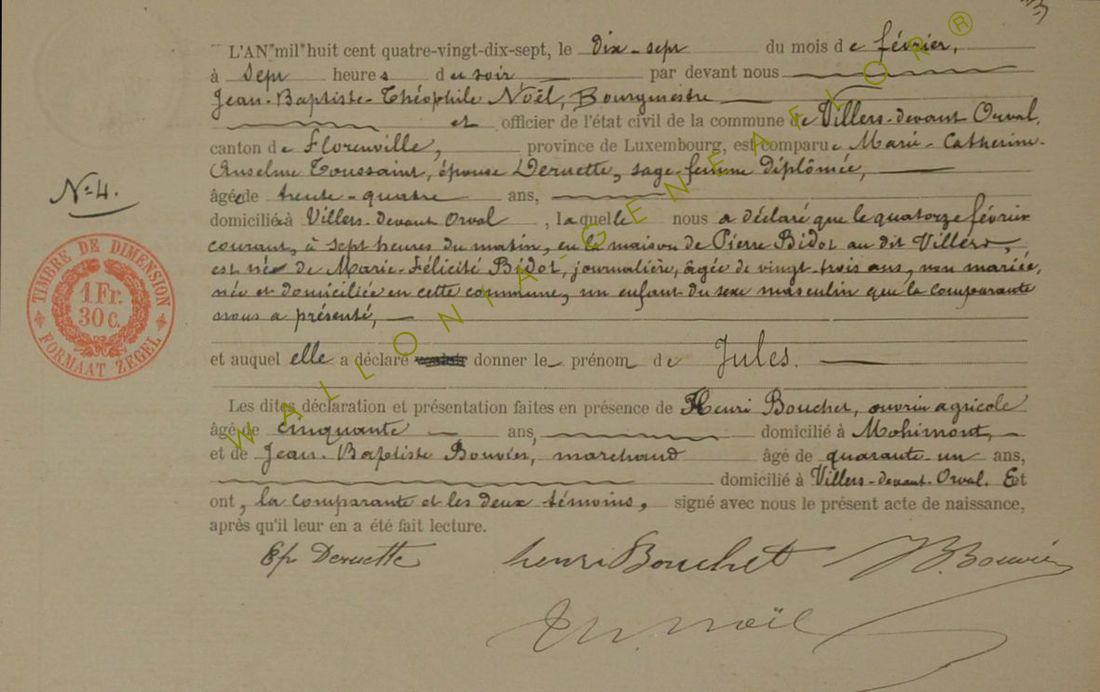 L'AN mil huit cent quatre-vingt-dix-sept, le dix-sept du mois de février,
à sept heures du soir, par devant nous
Jean-Baptiste-Théophile Noël, Bourgmestre
et officier de l'état civil de la commune de Villers-devant Orval,
canton de Florenville, province de Luxembourg, est comparue Marie-Catherine-
Anselme Toussaint, épouse Deruette, sage-femme diplômée,
âgée de trente-quatre ans,
domiciliée à Villers-devant Orval, laquelle nous a déclaré que le quatorze février
courant, à sept heures du matin, en la maison de Pierre Bidot au dit Villers,
est né de Marie-Félicité Bidot, journalière, âgée de vingt-trois ans, non mariée,
née et domiciliée en cette commune, un enfant du sexe masculin que la comparante
nous a présenté,
et auquel elle a déclaré donner le prénom de Jules.
Les dites déclaration et présentation faites en présence de Henri Bouchet, ouvrier agricole
âgé de cinquante ans, domicilié à Mohimont,
et de Jean-Baptiste Bouvier, marchand âgé de quarante-un ans,
domicilié à Villers-devant-Orval. Et
ont, la comparante et les deux témoins, signé avec nous le présent acte de naissance,
après qu'il leur en a été fait lecture.
Ep Deruette henri Bouchet JB Bouvier
Th. Noël
N° 4.
TIMBRE DE DIMENSION
1 Fr.
30 c.
FORMAAT ZEGEL
WALLONIA-GENEAFLOR®